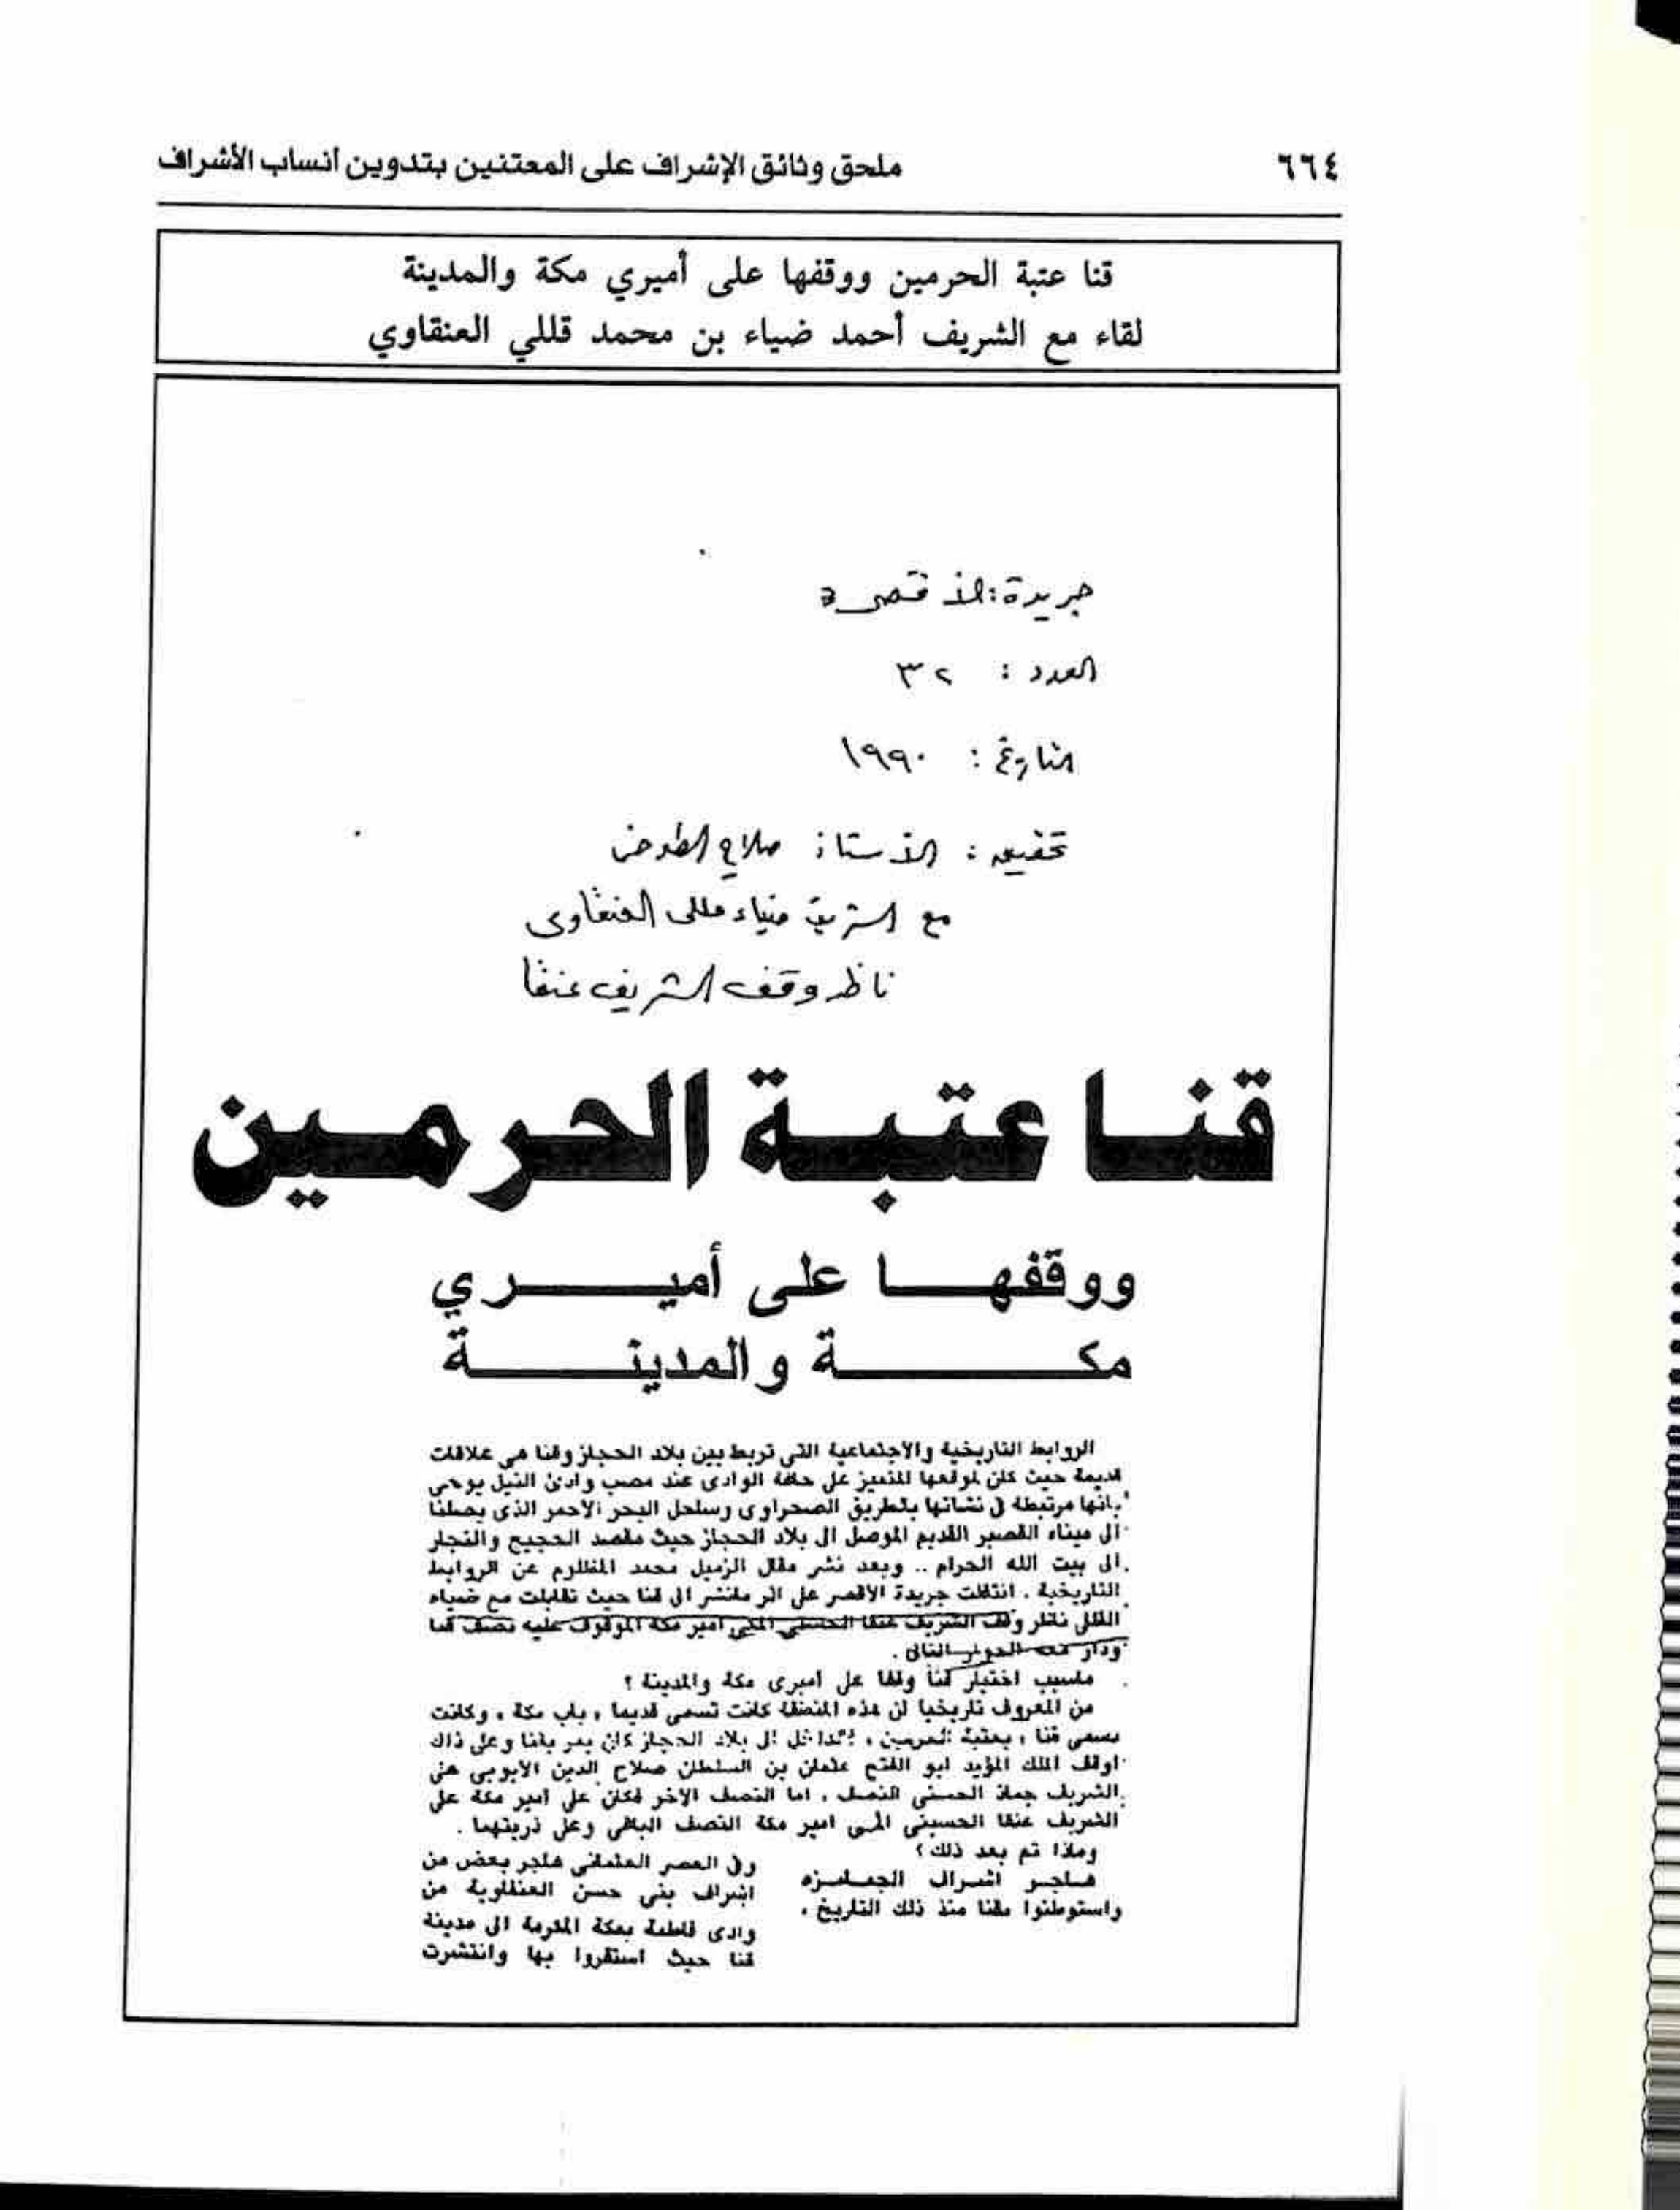 ٦٦٤
ملحق وثائق الإشراف على المعتنين بتدوين أنساب الأشراف
قنا عتبة الحرمين ووقفها على أميري مكة والمدينة
لقاء مع الشريف أحمد ضياء بن محمد قللي العنقاوي
جريدة: الأقصر
العدد : ٣٢
التاريخ : ١٩٩٠
تحقيق : الأستاذ صلاح
مع الشريف ضياء قللى العنقاوى
ناظر وقف الشريف عنقا
قنا عتبة الحرمين
ووقفها على أميري
مكة والمدينة
الروابط التاريخية والاجتماعية التى تربط بين بلاد الحجاز وقنا هى علاقات
قديمة حيث كان لموقعها المتميز على حافة الوادى عند مصب وادى النيل يوحى
بانها مرتبطة فى نشاتها بالطريق الصحراوى وساحل البحر الاحمر الذى يصلنا
الى ميناء القصير القديم الموصل الى بلاد الحجاز حيث مقصد الحجيج والتجار
الى بيت الله الحرام .. وبعد نشر مقال الزميل محمد المظلوم عن الروابط
التاريخية . انتقلت جريدة الاقصر على اثر مانشر الى قنا حيث تقابلت مع ضياء
القللى ناظر وقف الشريف عنقا الحسنى المكى امير مكة الموقوف عليه نصف قنا
ودار الحوار التالى .
ماسبب اختيار قنا وقفا على اميرى مكة والمدينة ؟
من المعروف تاريخيا ان هذه المنطقة كانت تسمى قديما ، باب مكة ، وكانت
يسمى قنا ، بعتبة الحرمين ، الداخل الى بلاد الحجاز كان يمر بقنا وعلى ذلك
اوقف الملك المؤيد ابو الفتح عثمان بن السلطان صلاح الدين الايوبى على
الشريف جماز الحسنى النصف ، اما النصف الاخر فكان على امير مكة على
الشريف عنقا الحسينى امير مكة النصف الباقى وعلى ذريتهما .
وماذا تم بعد ذلك ؟
هاجر اشراف الجمامزه
واستوطنوا بقنا منذ ذلك التاريخ ،
وفى العصر العثمانى هاجر بعض من
اشراف بنى حسن العنقاوية من
وادى فاطمة بمكة المكرمة الى مدينة
قنا حيث استقروا بها وانتشرت